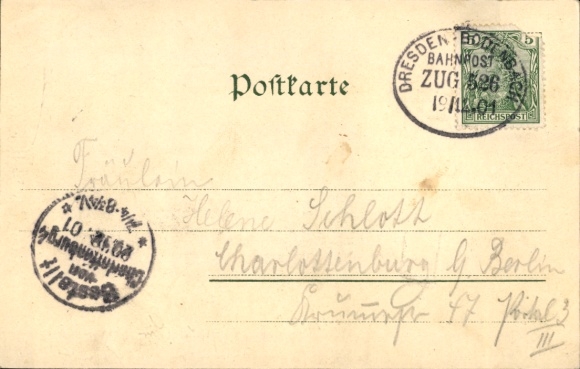 DRESDEN-BODENBACH
BAHNPOST
ZUG 526
19/12.01
5
REICHSPOST
Postkarte
Fräulein
Helene Schlott
Charlottenburg b/ Berlin
47 Portal 3
III
Bestellt
von
Charlottenburg 4
20.12.01